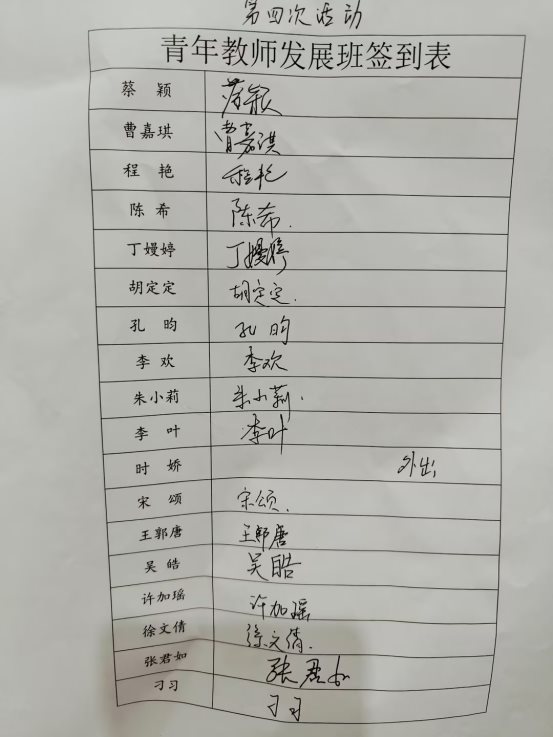 第四次活动
青年教师发展班签到表
蔡 颖 蔡颖
曹嘉琪 曹嘉淇
程 艳 程艳
陈 希 陈希.
丁嫚婷 丁嫚婷
胡定定 胡定定.
孔 昀 孔昀
李 欢 李欢
朱小莉 朱小莉.
李 叶 李叶
时 娇 外出
宋 颂 宋颂.
王郭唐 王郭唐
吴 皓 吴皓
许加瑶 许加瑶
徐文倩 徐文倩.
张君如 张君如
刁习 刁习